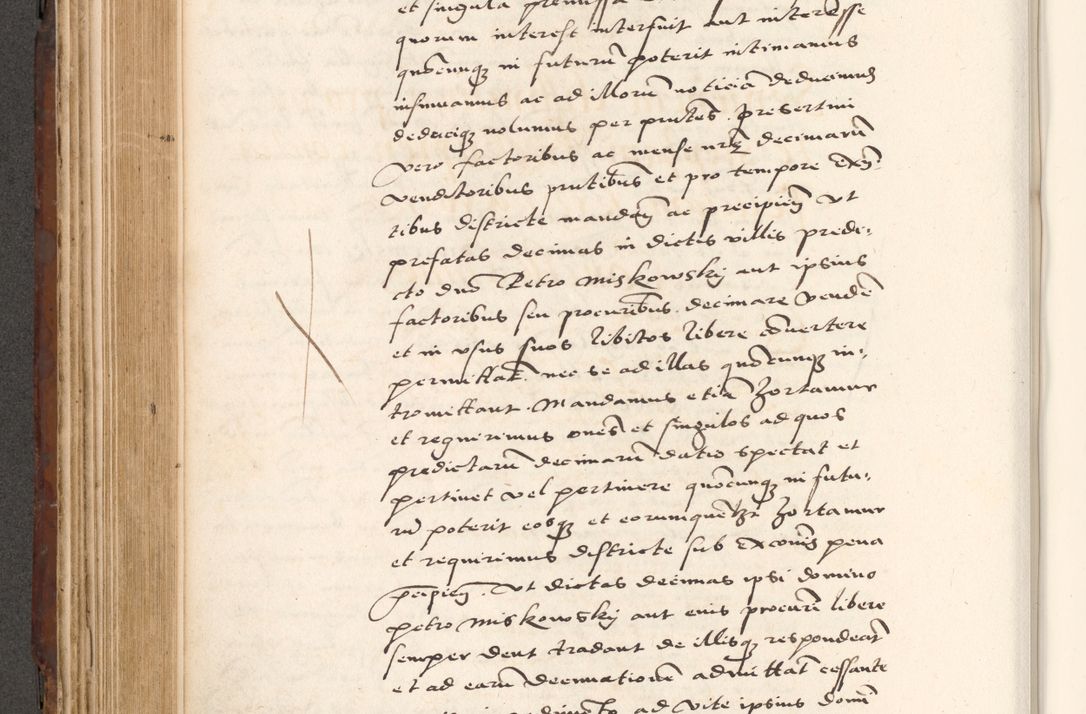 et singula premissa
quorum interest interfuit aut interesse
quōcunqȝ in futurū poterit intimamus
insinuamus ac ad illorū noticiā deducimus
deduciqȝ volumus per pn̄tes. Presertim
vero factoribus ac mense nr̄e decimarū
venditoribus pn̄tibus et pro tempore exn̄-
tibus districte mandān ac precipien̄ ut
prefatas decimas in dictis villis predi-
cto dno Petro Miskowskij aut ipsius
factoribus seu procur̄ibus. decimare vendē
et in usus suos libitos libere cōvertere
permittāt. nec se ad illas quōcunqȝ in-
tromittant. Mandamus etiā hortamur
et requirimus om̄es et singulos ad quos
predictarū decimarū datio spectat et
pertinet vel pertinere quōcunqȝ in futu-
rū poterit eosqȝ et eorum quēlibet hortamur
et requirimus districte sub excōis pena
precipien̄. Ut dictas decimas ipsi domino
petro Miskowskij aut eius procur̄i libere
semper dent tradant de illisqȝ respondeāt
et ad earū decimationē admittāt cessante
ad vite ipsius domī